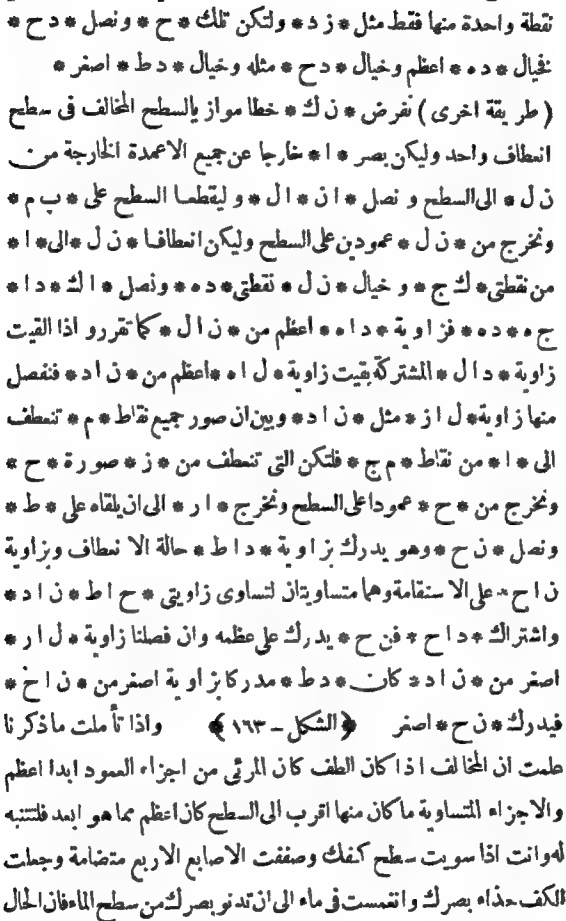 نقطة واحدة منها فقط مثل * ز د * ولتكن تلك * ح * ونصل * د ح *
فخيال * د ه * اعظم وخيال * د ح * مثله وخيال * د ط * اصغر *
( طريقة اخرى ) نفرض * ن ك * خطا مواز يالسطح المخالف فى سطح
انعطاف واحد وليكن بصر * ا * خارجا عن جميع الاعمدة الخارجة من
ن ل * الى السطح و نصل * ا ن * ا ل * و ليقطعا السطح على * ب م *
ونخرج من * ن ل * عمودين على السطح وليكن انعطافا * ن ل * الى * ا *
من نقطتى * ك ج * و خيال * ن ل * نقطتى * د ه * ونصل * ا ك * د ا *
ج ه * د ه * فزاوية * د ا ه * اعظم من * ن ا ل * كما تقررو اذا القيت
زاوية * د ا ل * المشتركة بقيت زاوية * ل ا ه * اعظم من * ن ا د * فنفصل
منها زاوية * ل ا ز * مثل * ن ا د * وبين ان صور جميع نقاط * م * تنعطف
الى * ا * من نقاط * م ج * فلتكن التى تنعطف من * ز * صورة * ح *
ونخرج من * ح * عموداعلى السطح ونخرج * ا ر * الى ان يلقاه على * ط *
ونصل * ن ح * وهو يدرك بزاوية * د ا ط * حالة الا نعطاف وبزاوية
ن ا ح * على الا ستقامة وهما متساويتان لتساوى زاويتى * ح ا ط * ن ا د *
واشتراك * د ا ح * فن ح * يدرك على عظمه وان فصلنا زاوية * ل ا ر *
اصغر من * ن ا د * كان * د ط * مدركا بزاوية اصغر من * ن ا خ *
فيدرك * ن ح * اصغر ﴿ الشكل – ١٦٣ ﴾ واذا تأملت ماذكرنا
علمت ان المخالف اذا كان الطف كان المرئى من اجزاء العمود ابدا اعظم
والاجزاء المتساوية ماكان منها اقرب الى السطح كان اعظم مما هو ابعد فلتتنبه
له وانت اذا سويت سطح كفك وصففت الاصابع الاربع متضامة وجعلت
الكف حذاء بصرك وانغمست فى ماء الى ان تدنو بصرك من سطح الماء فان الحال